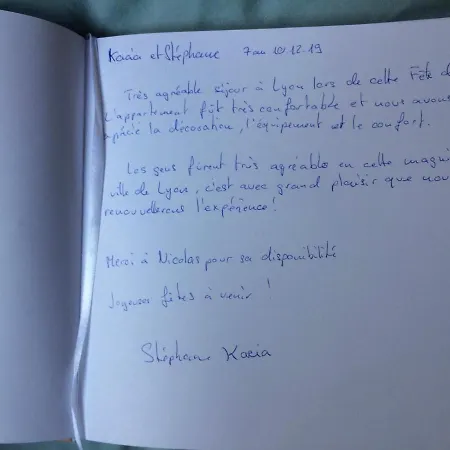 Kacia et Stéphane 7 au 10.12.19
Très agréable séjour à Lyon lors de cette Fête d
L'appartement fût très confortable et nous avons
la décoration, l'équipement et le confort.
Les gens fûrent très agréable en cette magni
ville de Lyon, c'est avec grand plaisir que nou
renouvellerons l'expérience!
Merci à Nicolas pour sa disponibilité
Joyeuses fêtes à venir !
Stéphane Kacia